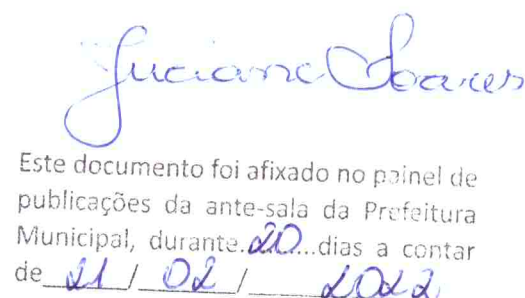 Luciane Soares
Este documento foi afixado no painel de
publicações da ante-sala da Prefeitura
Municipal, durante.20...dias a contar
de 21 / 02 / 2022